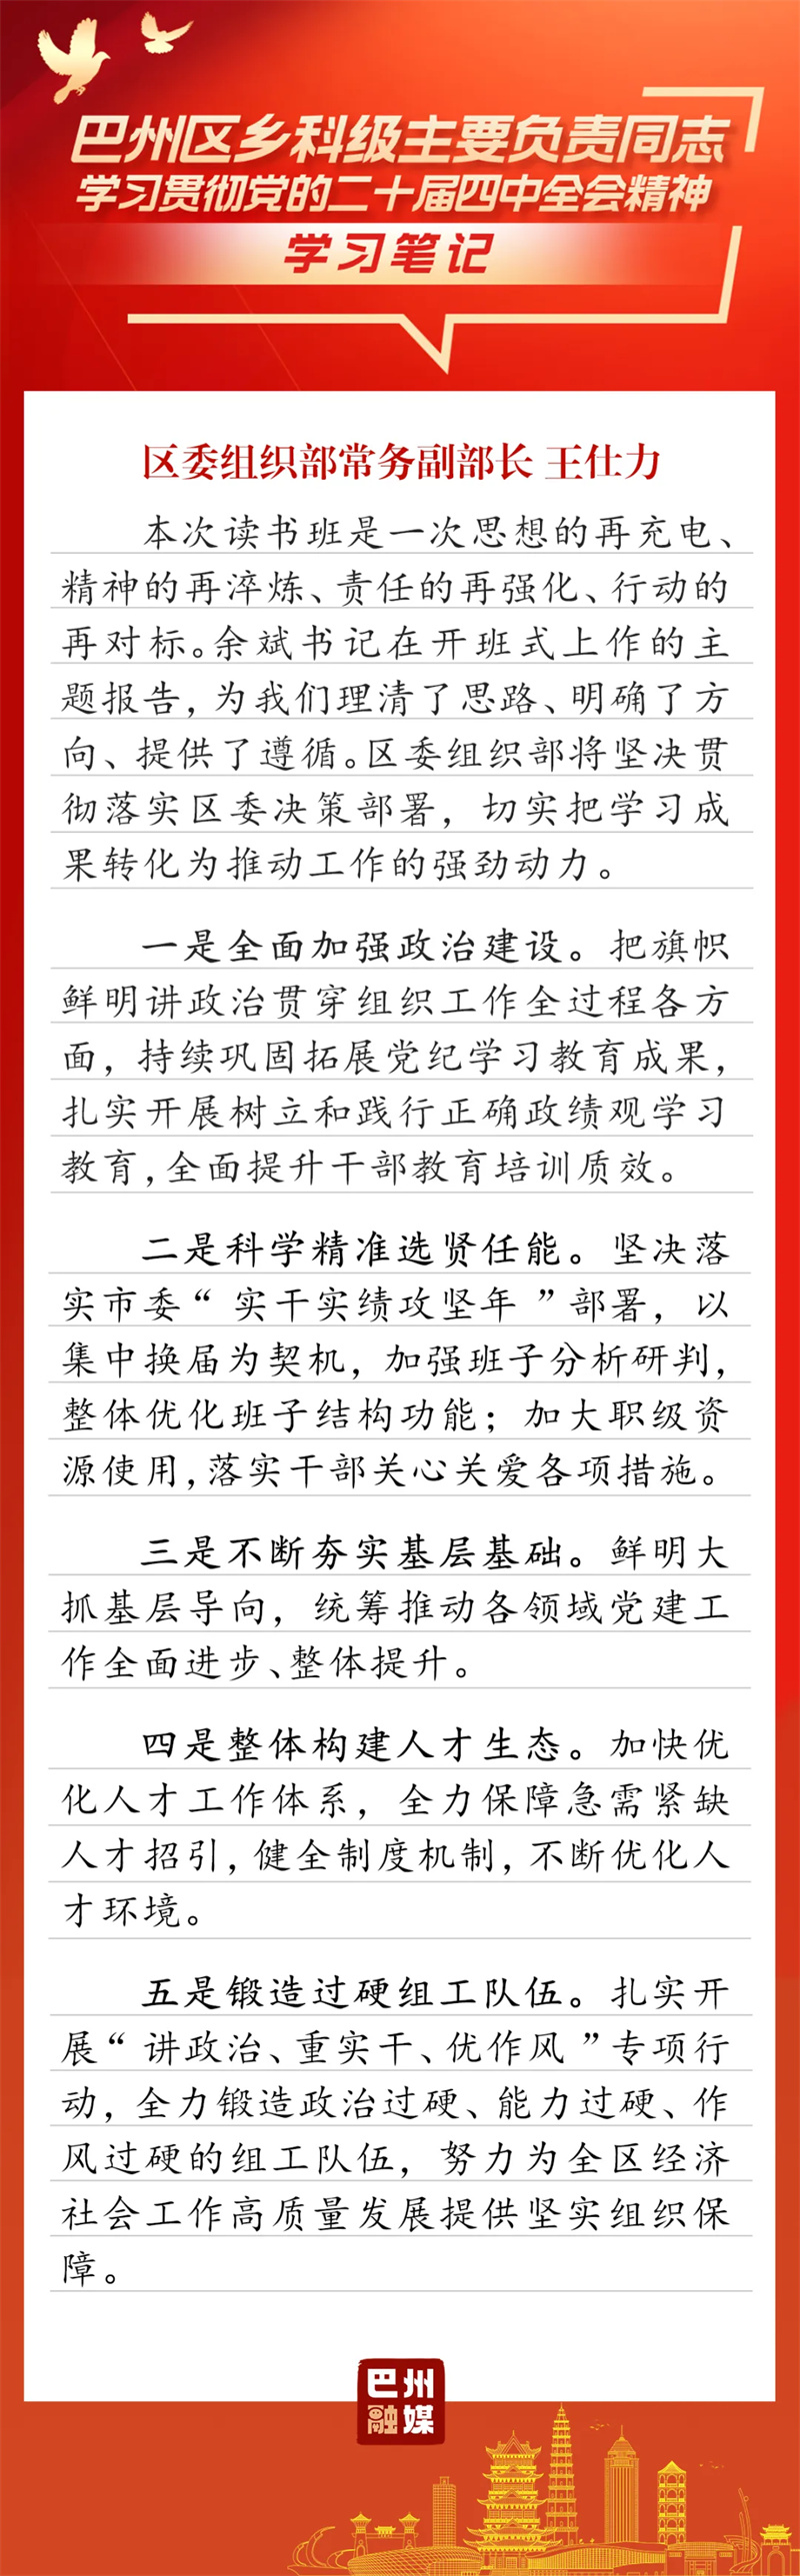 巴州区乡科级主要负责同志
学习贯彻党的二十届四中全会精神
学习笔记
区委组织部常务副部长 王仕力
本次读书班是一次思想的再充电、
精神的再淬炼、责任的再强化、行动的
再对标。余斌书记在开班式上作的主
题报告，为我们理清了思路、明确了方
向、提供了遵循。区委组织部将坚决贯
彻落实区委决策部署，切实把学习成
果转化为推动工作的强劲动力。
一是全面加强政治建设。把旗帜
鲜明讲政治贯穿组织工作全过程各方
面，持续巩固拓展党纪学习教育成果，
扎实开展树立和践行正确政绩观学习
教育，全面提升干部教育培训质效。
二是科学精准选贤任能。坚决落
实市委“实干实绩攻坚年”部署，以
集中换届为契机，加强班子分析研判，
整体优化班子结构功能；加大职级资
源使用，落实干部关心关爱各项措施。
三是不断夯实基层基础。鲜明大
抓基层导向，统筹推动各领域党建工
作全面进步、整体提升。
四是整体构建人才生态。加快优
化人才工作体系，全力保障急需紧缺
人才招引，健全制度机制，不断优化人
才环境。
五是锻造过硬组工队伍。扎实开
展“讲政治、重实干、优作风”专项行
动，全力锻造政治过硬、能力过硬、作
风过硬的组工队伍，努力为全区经济
社会工作高质量发展提供坚实组织保
障。
巴州
融媒